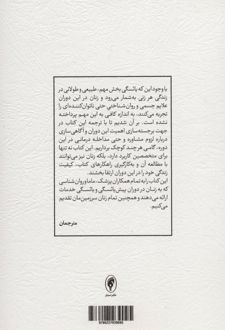 با وجود این که یائسگی بخش مهم، طبیعی و طولانی در
زندگی هر زنی به‌شمار می‌رود و زنان در این دوران
علایم جسمی و روان‌شناختی حتی ناتوان‌کننده‌ای را
تجربه می‌کنند، به اندازه کافی به این مهم پرداخته
نشده است. بر آن شدیم تا با ترجمه این کتاب در
جهت برجسته‌سازی اهمیت این دوران و آگاهی‌سازی
در لزوم مشاوره و حتی مداخله درمانی در این
دوره، گامی هرچند کوچک برداریم. این کتاب نه تنها
برای متخصصین کاربرد دارد، بلکه زنان نیز می‌توانند
با مطالعه آن و به‌کارگیری راهکارهای کتاب، کیفیت
زندگی خود را در این دوران ارتقا بخشند.
این کتاب را به تمام همکاران پزشک، ماما و روان‌شناسی
که به زنان در دوران پیش‌یائسگی و یائسگی خدمات
ارائه می‌دهند و همچنین تمام زنان سرزمین‌مان تقدیم
می‌کنیم.
مترجمان